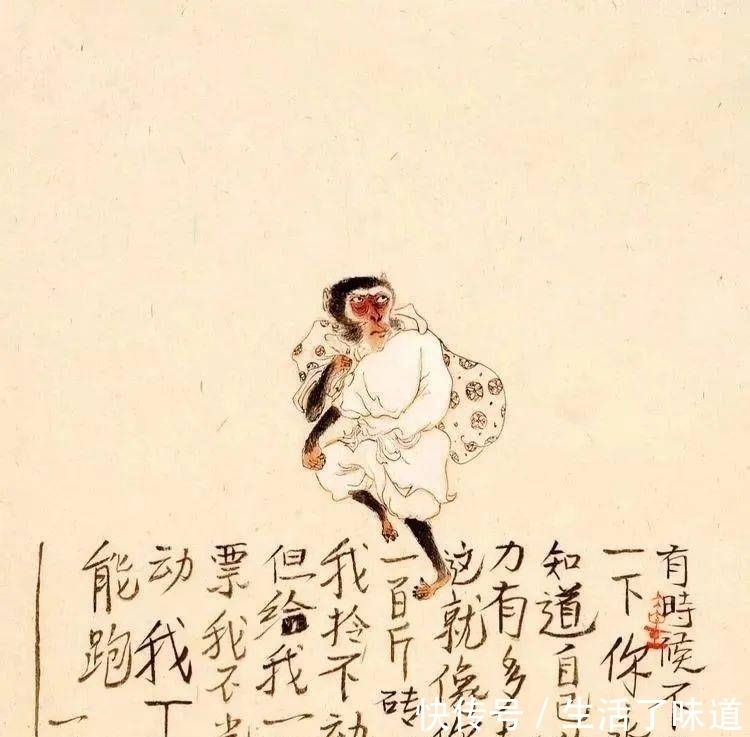 有時候不
一下你
知道自己
力有多
这就像
一百斤砖
我拎不动
但给我一
票我不
动我
能跑
一
快传号 / 生活了味道